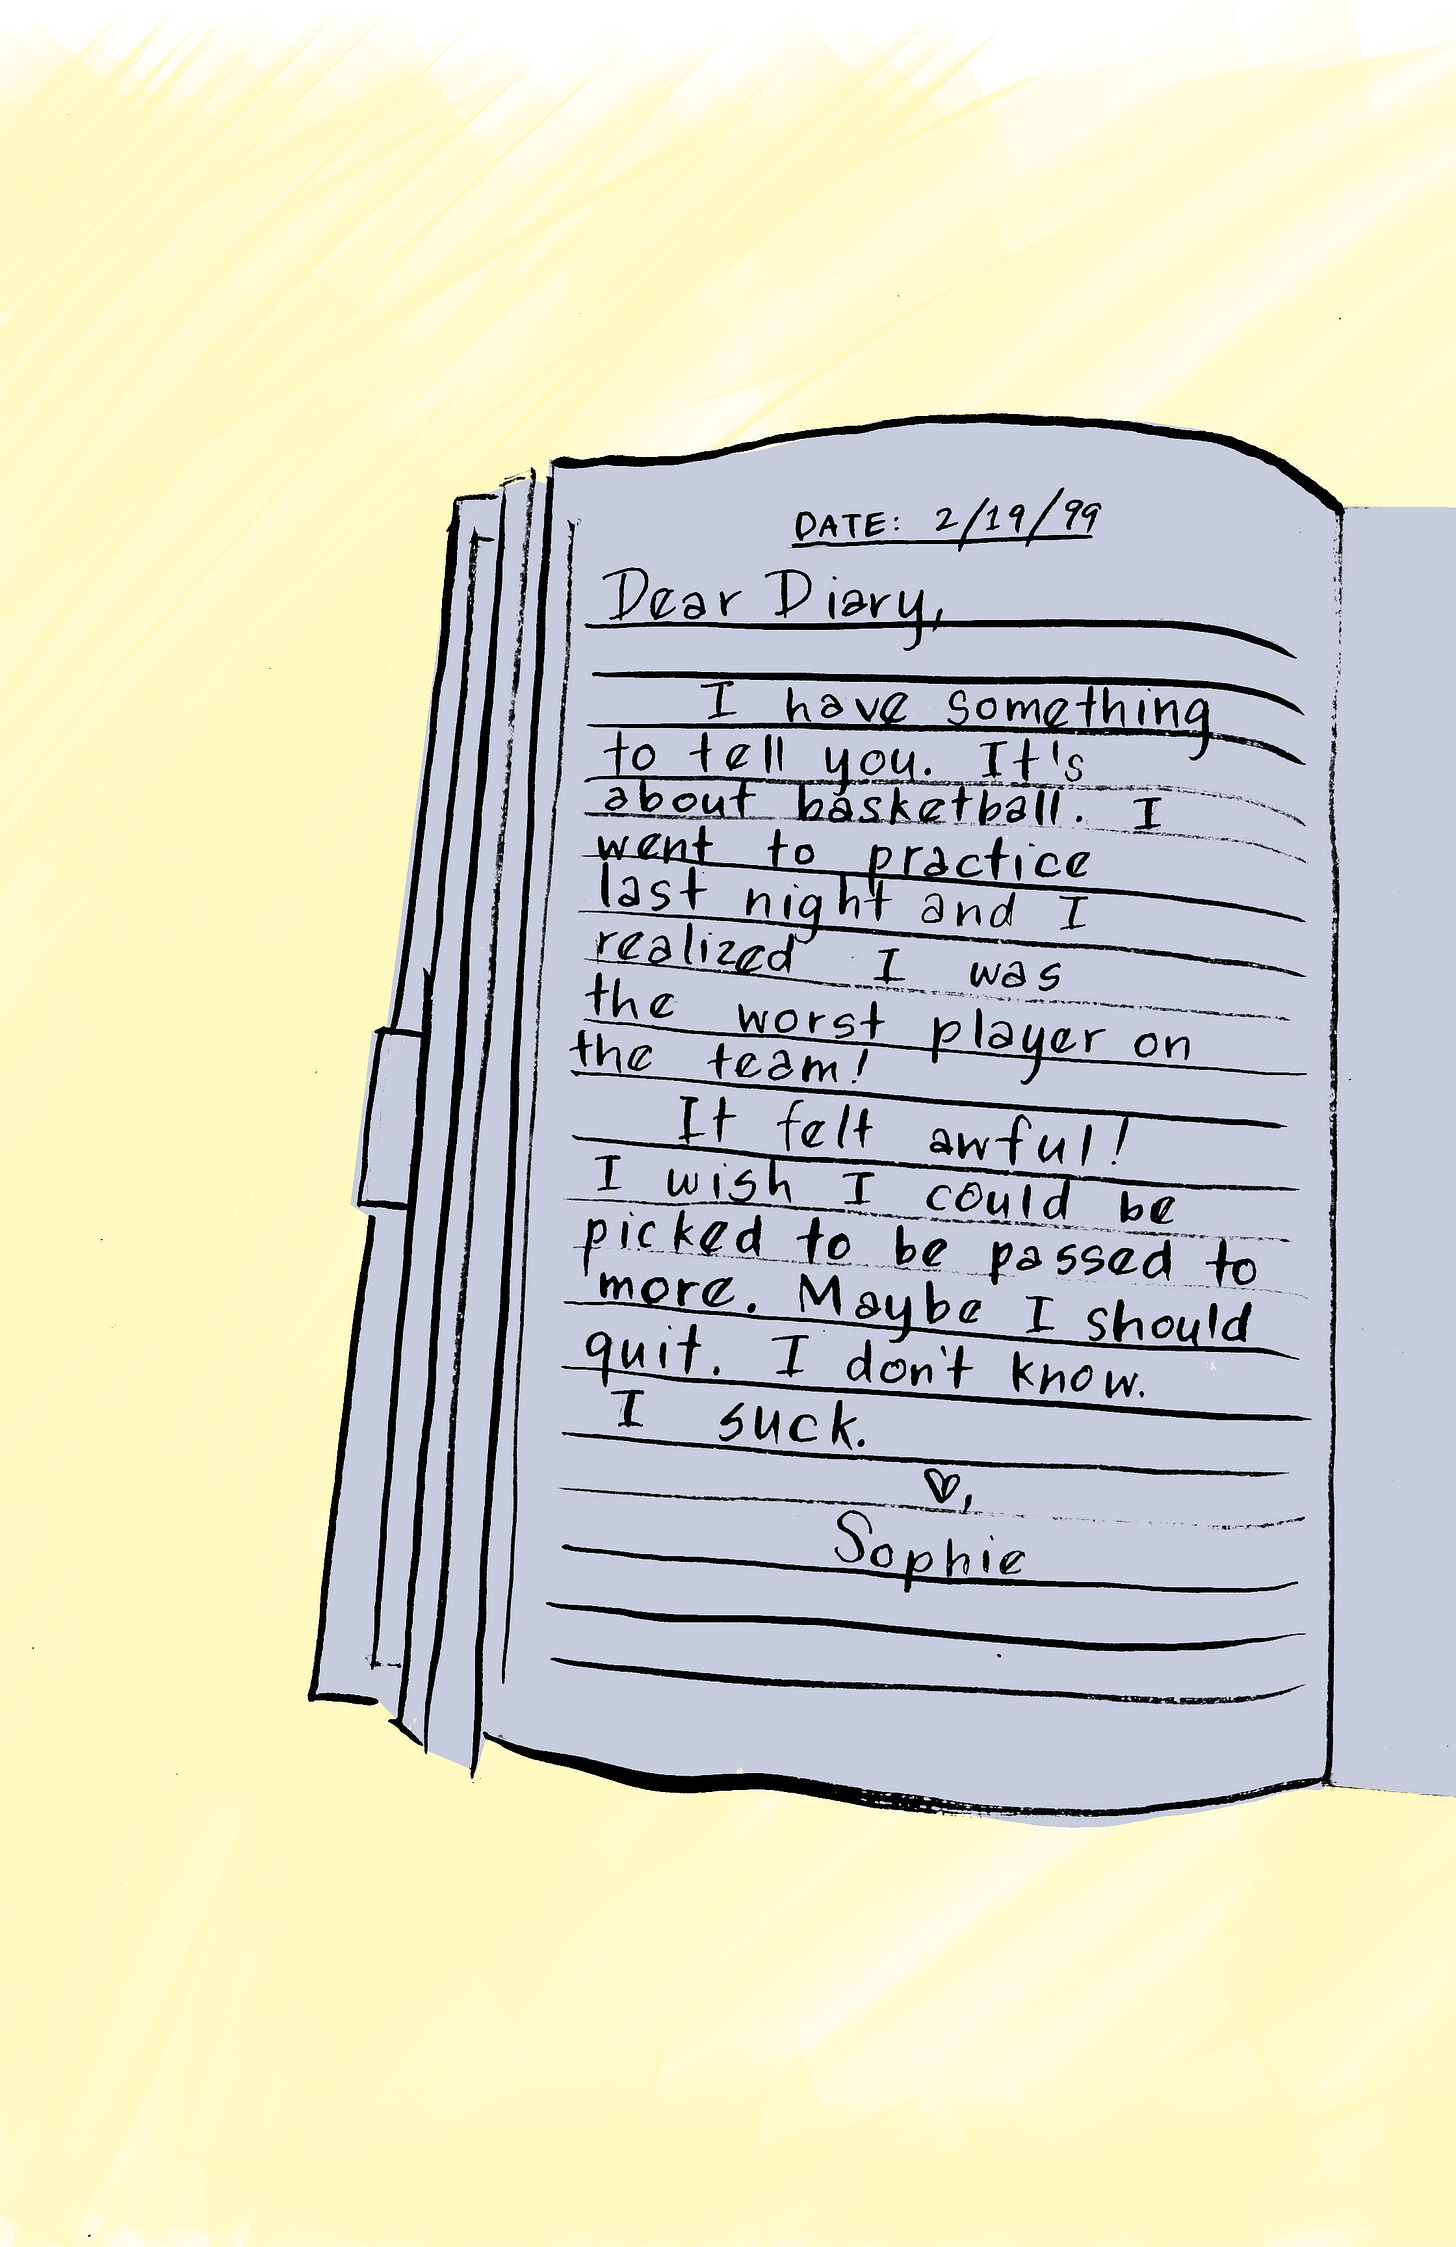 DATE: 2/19/99
Dear Diary,
I have something
to tell you. It's
about basketball. I
went to practice
last night and I
realized I was
the worst player on
the team!
It felt awful!
I wish I could be
picked to be passed to
more. Maybe I should
quit. I don't know.
I suck.
♡,
Sophie